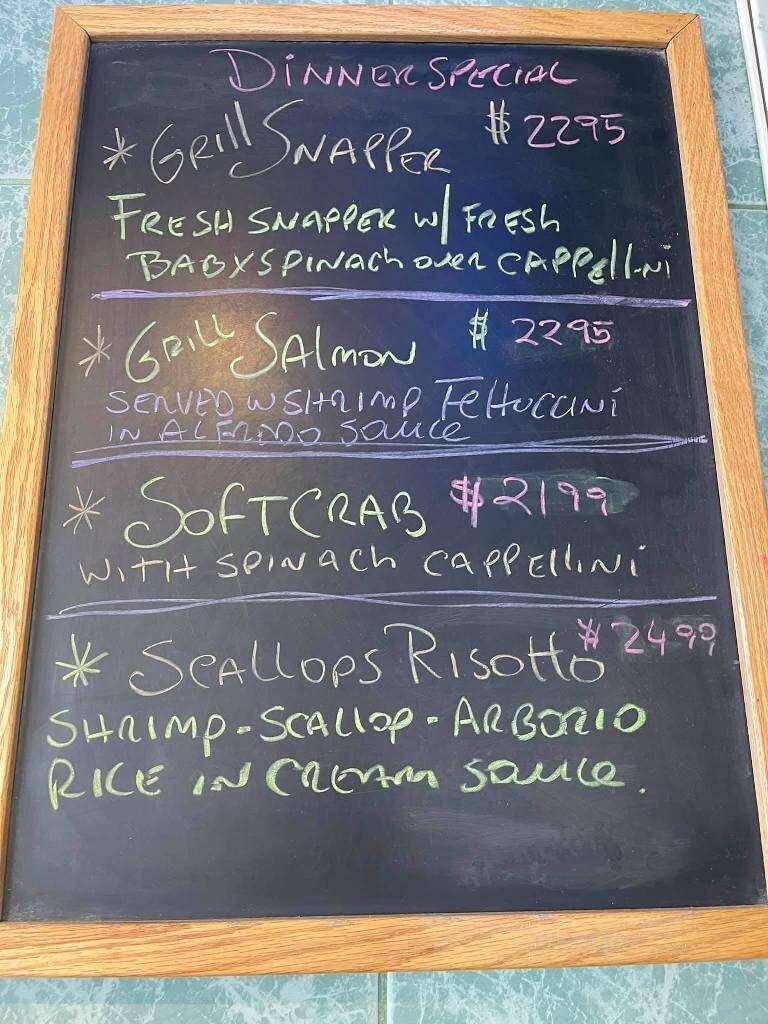 DINNER SPECIAL
* GRill SNAPPER $ 2295
FRESH SNAPPER W/ FRESH
BABY SPINACh over CAPPEllini
* GRILL SAlmon $ 2295
SERVED W SHRIMP FettuCCiNi
IN ALFREDO SAuce
* SOFT CRAB $ 2199
WITH SPINACh CAPPEllINi
* SCALLOPS RISOtto $ 2499
SHRIMP - SCALLOP - ARBORIO
RICE IN CREAM SAUCE.